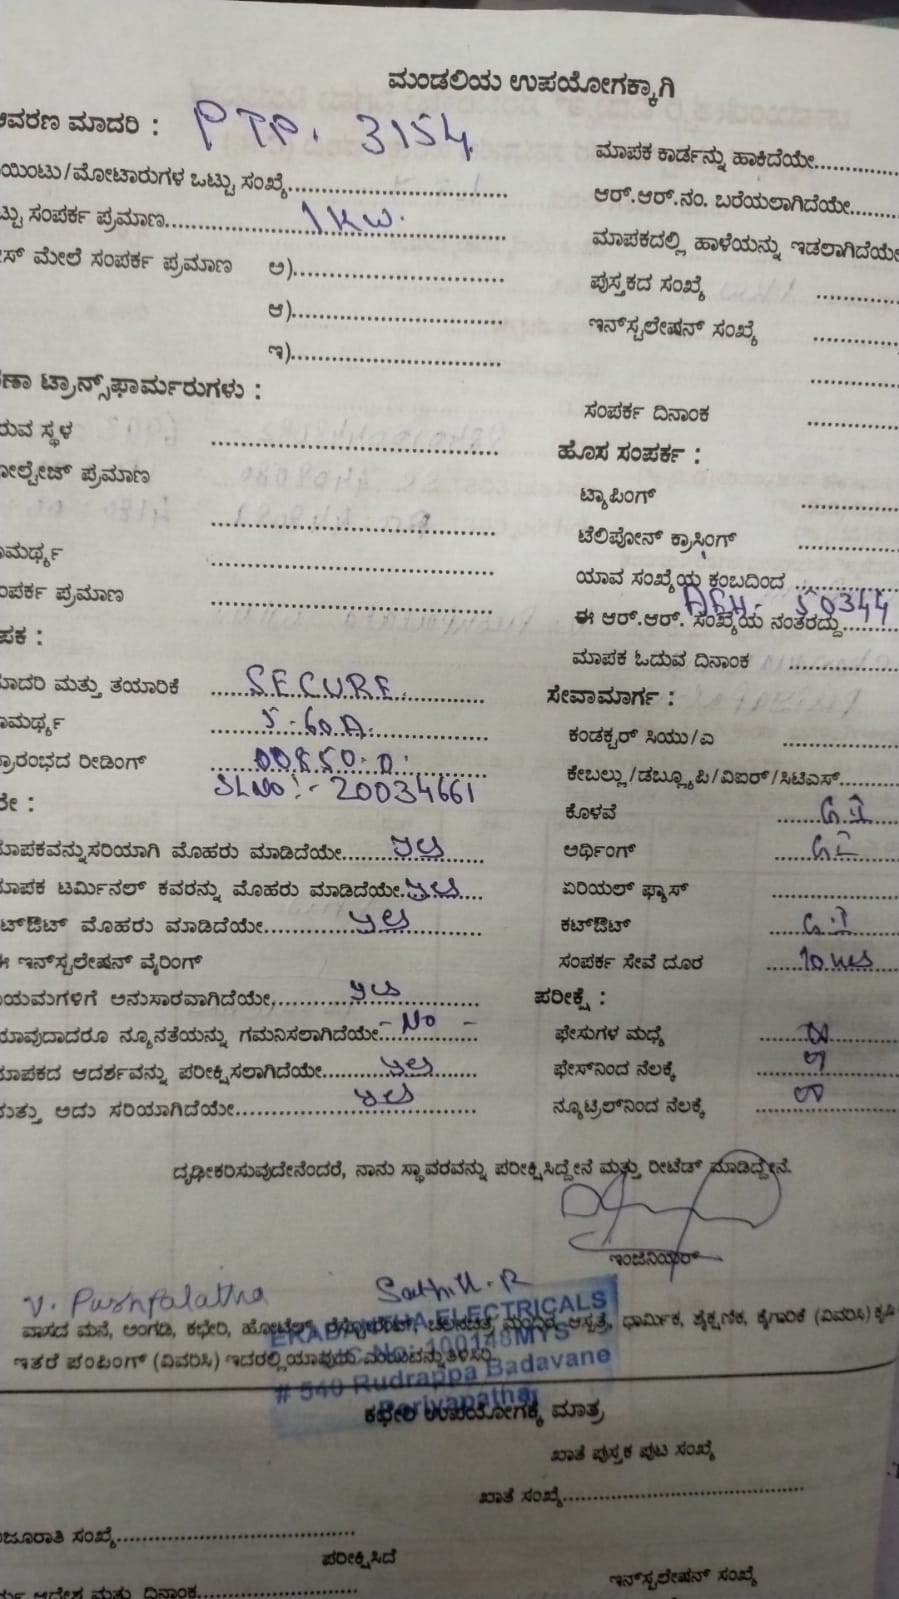 ಮಂಡಲಿಯ ಉಪಯೋಗಕ್ಕಾಗಿ
ಆವರಣ ಮಾದರಿ : PTP. 3154
ಯಿಂಟು/ಮೋಟಾರುಗಳ ಒಟ್ಟು ಸಂಖ್ಯೆ
ಟ್ಟು ಸಂಪರ್ಕ ಪ್ರಮಾಣ 1 KW.
ಸ್ ಮೇಲೆ ಸಂಪರ್ಕ ಪ್ರಮಾಣ ಅ)
ಆ)
ಇ)
ಣಾ ಟ್ರಾನ್ಸ್‌ಫಾರ್ಮರುಗಳು :
ರುವ ಸ್ಥಳ
ೋಲ್ಟೇಜ್ ಪ್ರಮಾಣ
ಾಮರ್ಥ್ಯ
ಂಪರ್ಕ ಪ್ರಮಾಣ
ಪಕ :
ಮಾದರಿ ಮತ್ತು ತಯಾರಿಕೆ SECURE.
ಾಮರ್ಥ್ಯ 5-60A.
ಪ್ರಾರಂಭದ ರೀಡಿಂಗ್ 00850.0.
SLNO:- 20034661
ರೇ :
ಮಾಪಕವನ್ನು ಸರಿಯಾಗಿ ಮೊಹರು ಮಾಡಿದೆಯೇ yes
ಮಾಪಕ ಟರ್ಮಿನಲ್ ಕವರನ್ನು ಮೊಹರು ಮಾಡಿದೆಯೇ yes
ಟ್‌ಔಟ್ ಮೊಹರು ಮಾಡಿದೆಯೇ yes
ಈ ಇನ್‌ಸ್ಟಲೇಷನ್ ವೈರಿಂಗ್
ಿಯಮಗಳಿಗೆ ಅನುಸಾರವಾಗಿದೆಯೇ yes
ಯಾವುದಾದರೂ ನ್ಯೂನತೆಯನ್ನು ಗಮನಿಸಲಾಗಿದೆಯೇ - No -
ಮಾಪಕದ ಆದರ್ಶವನ್ನು ಪರೀಕ್ಷಿಸಲಾಗಿದೆಯೇ yes
ಮತ್ತು ಅದು ಸರಿಯಾಗಿದೆಯೇ yes
ಮಾಪಕ ಕಾರ್ಡನ್ನು ಹಾಕಿದೆಯೇ
ಆರ್.ಆರ್.ನಂ. ಬರೆಯಲಾಗಿದೆಯೇ
ಮಾಪಕದಲ್ಲಿ ಹಾಳೆಯನ್ನು ಇಡಲಾಗಿದೆಯೇ
ಪುಸ್ತಕದ ಸಂಖ್ಯೆ
ಇನ್‌ಸ್ಟಲೇಷನ್ ಸಂಖ್ಯೆ
ಸಂಪರ್ಕ ದಿನಾಂಕ
ಹೊಸ ಸಂಪರ್ಕ :
ಟ್ಯಾಪಿಂಗ್
ಟೆಲಿಪೋನ್ ಕ್ರಾಸಿಂಗ್
ಯಾವ ಸಂಖ್ಯೆಯ ಕಂಬದಿಂದ
50344
ಈ ಆರ್.ಆರ್. ಸಂಖ್ಯೆಯ ನಂತರದ್ದು
ಮಾಪಕ ಓದುವ ದಿನಾಂಕ
ಸೇವಾಮಾರ್ಗ :
ಕಂಡಕ್ಟರ್ ಸಿಯು/ಎ
ಕೇಬಲ್ಲು/ಡಬ್ಲ್ಯೂಪಿ/ವಿಐರ್/ಸಿಟಿಎಸ್
ಕೊಳವೆ G.I
ಅರ್ಥಿಂಗ್ G.I
ಏರಿಯಲ್ ಫ್ಯಾಸ್
ಕಟ್‌ಔಟ್ G.I
ಸಂಪರ್ಕ ಸೇವೆ ದೂರ 10 mes
ಪರೀಕ್ಷೆ :
ಫೇಸುಗಳ ಮಧ್ಯೆ
ಫೇಸ್‌ನಿಂದ ನೆಲಕ್ಕೆ
ನ್ಯೂಟ್ರಿಲ್‌ನಿಂದ ನೆಲಕ್ಕೆ
ದೃಢೀಕರಿಸುವುದೇನೆಂದರೆ, ನಾನು ಸ್ಥಾವರವನ್ನು ಪರೀಕ್ಷಿಸಿದ್ದೇನೆ ಮತ್ತು ರೀಟೆಡ್ ಮಾಡಿದ್ದೇನೆ.
ಇಂಜಿನಿಯರ್
V. Pushpalatha
ELECTRICALS
ವಾಸದ ಮನೆ, ಅಂಗಡಿ, ಕಛೇರಿ, ಹೋಟೆಲ್, ಮಂದಿರ, ಆಸ್ಪತ್ರೆ, ಧಾರ್ಮಿಕ, ಶೈಕ್ಷಣಿಕ, ಕೈಗಾರಿಕೆ (ವಿವರಿಸಿ) ಕೃಷಿ
ಇತರೆ ಪಂಪಿಂಗ್ (ವಿವರಿಸಿ) ಇದರಲ್ಲಿ ಯಾವುದು ಎಂಬುದನ್ನು ತಿಳಿಸಿರಿ
# 540 Rudrappa Badavane
Periyapatna
ಕಛೇರಿ ಉಪಯೋಗಕ್ಕೆ ಮಾತ್ರ
ಖಾತೆ ಪುಸ್ತಕ ಪುಟ ಸಂಖ್ಯೆ
ಖಾತೆ ಸಂಖ್ಯೆ
ಂಜೂರಾತಿ ಸಂಖ್ಯೆ
ಪರೀಕ್ಷಿಸಿದೆ
ಆದೇಶ ಮತ್ತು ದಿನಾಂಕ
ಇನ್‌ಸ್ಟಲೇಷನ್ ಸಂಖ್ಯೆ